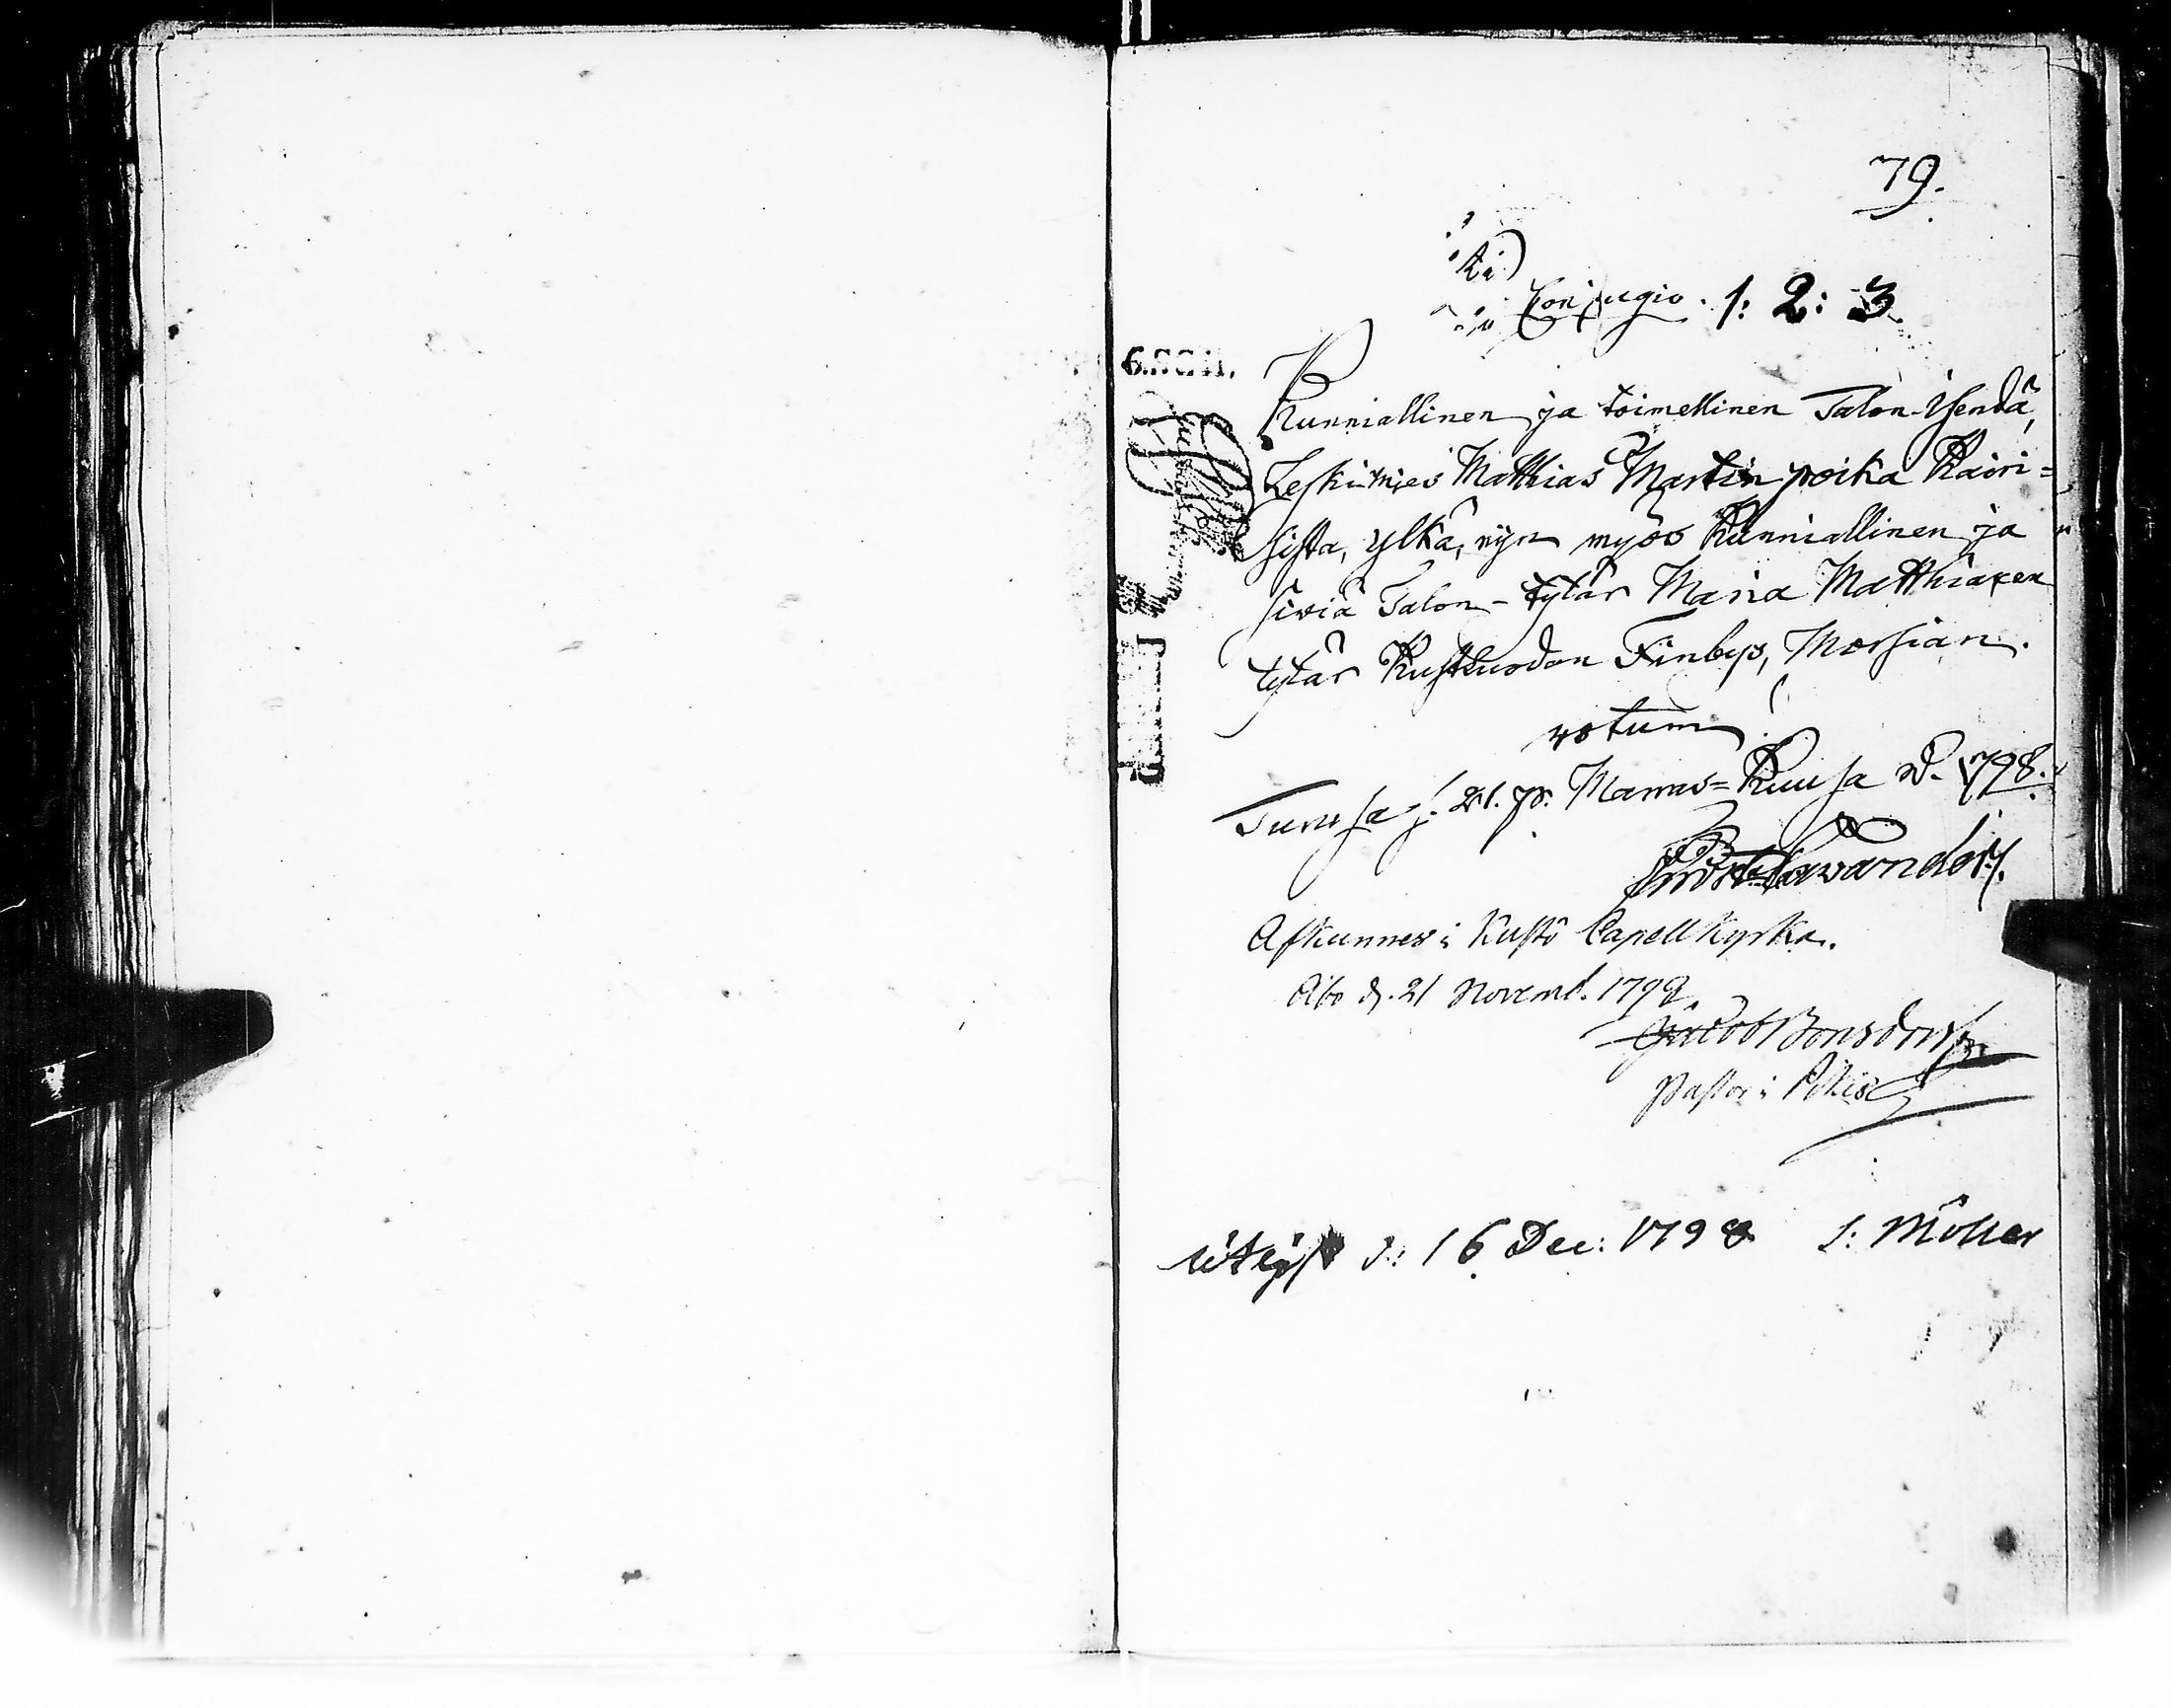 79.
Conjugio. 1: 2: 3
6. SCH.
Kunniallinen ja toimellinen Talon-Isendä,
Leskimies Matthias Martin poika Kaori=
sista, ylkä, nijn myös Kunniallinen ja
siviä Talon-tytär Maria Matthiaxen
tytär Kustluodon Finbys, Morsian.
votum!
Turusa d. 21. p. Marras=Kuusa w. 1798.
Lavander.
Afkunnes i Kustö Capell kyrka.
Åbo d. 21 Novemb. 1798.
Jacob Bonsdorff
Pastor i Pikis
utlyst d: 16 Dec: 1798 L: Möller